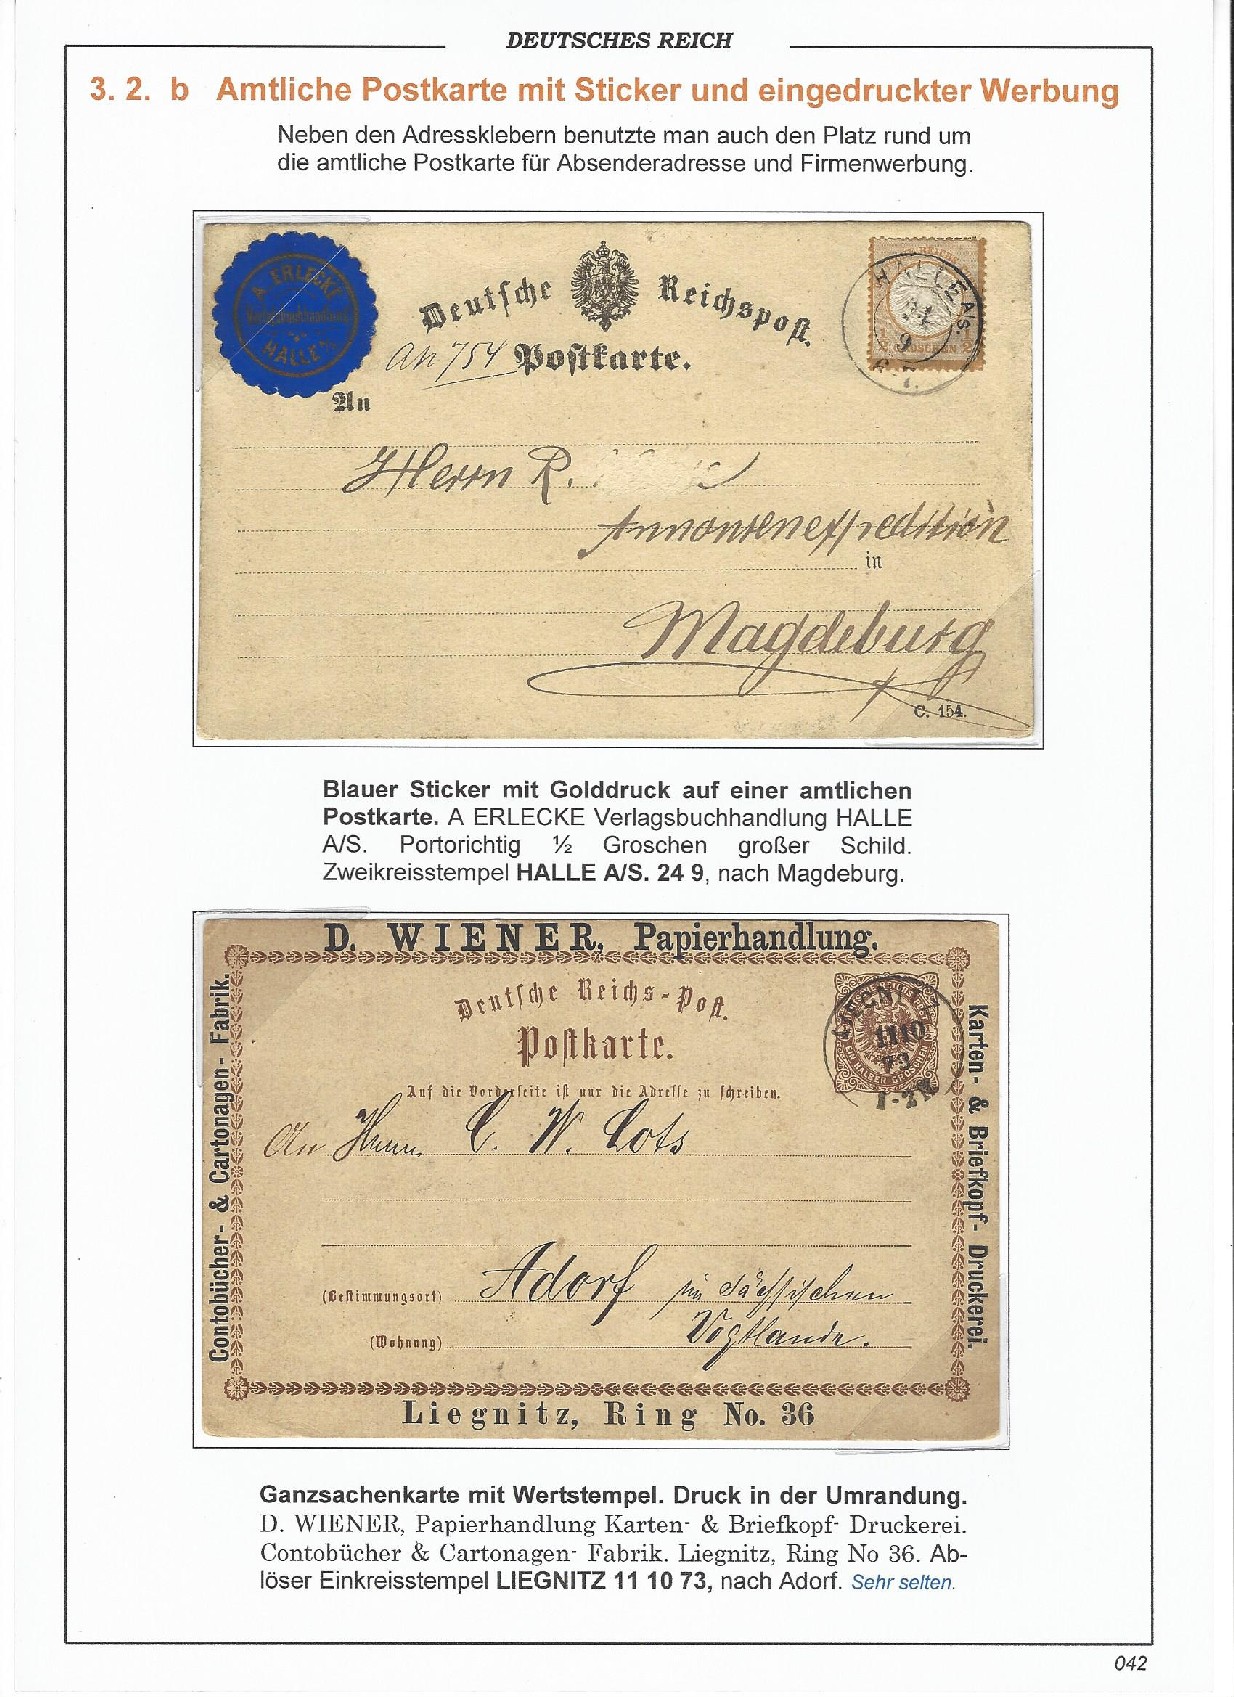 DEUTSCHES REICH
3. 2. b Amtliche Postkarte mit Sticker und eingedruckter Werbung
Neben den Adressklebern benutzte man auch den Platz rund um
die amtliche Postkarte für Absenderadresse und Firmenwerbung.
A. ERLECKE
Verlagsbuchhandlung
HALLE A/S.
Deutsche Reichspost.
Postkarte.
An 754
HALLE A/S.
9
An
Herrn R.
Annonsenexpedition
in
Magdeburg
C. 154.
Blauer Sticker mit Golddruck auf einer amtlichen
Postkarte. A ERLECKE Verlagsbuchhandlung HALLE
A/S. Portorichtig ½ Groschen großer Schild.
Zweikreisstempel HALLE A/S. 24 9, nach Magdeburg.
D. WIENER, Papierhandlung.
Contobücher- & Cartonagen- Fabrik.
Karten- & Briefkopf- Druckerei.
Deutsche Reichs-Post.
Postkarte.
LIEGNITZ
11 10
73
1-2N
Auf die Vorderseite ist nur die Adresse zu schreiben.
An Herrn C. W. Lots
(Bestimmungsort) Adorf im sächsischen
(Wohnung) Vogtlande.
Liegnitz, Ring No. 36
Ganzsachenkarte mit Wertstempel. Druck in der Umrandung.
D. WIENER, Papierhandlung Karten- & Briefkopf- Druckerei.
Contobücher & Cartonagen- Fabrik. Liegnitz, Ring No 36. Ab-
löser Einkreisstempel LIEGNITZ 11 10 73, nach Adorf. Sehr selten.
042